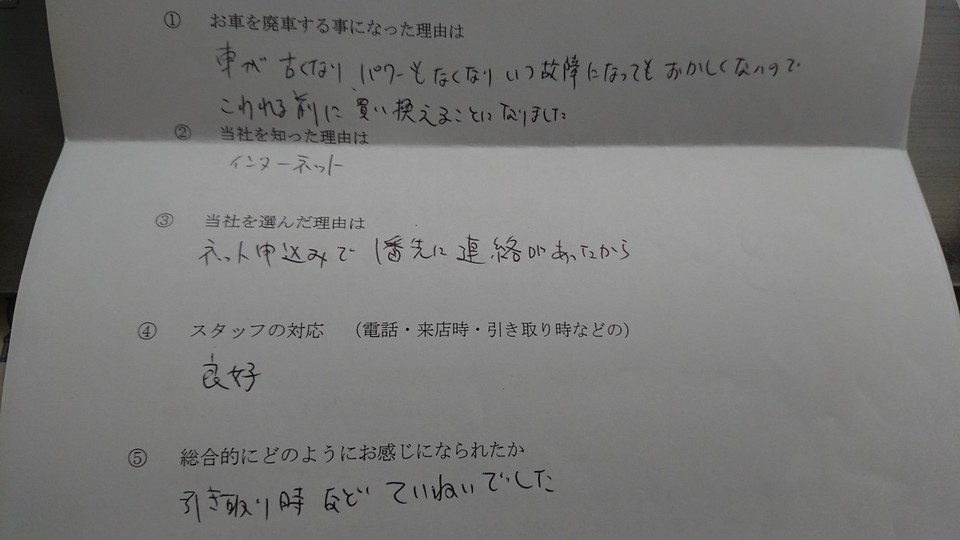 ① お車を廃車する事になった理由は
車が古くなり パワーもなくなり いつ故障になってもおかしくないので
こわれる前に買い換えることになりました
② 当社を知った理由は
インターネット
③ 当社を選んだ理由は
ネット申込みで 1番先に連絡があったから
④ スタッフの対応 (電話・来店時・引き取り時などの)
良好
⑤ 総合的にどのようにお感じになられたか
引き取り時など ていねいでした